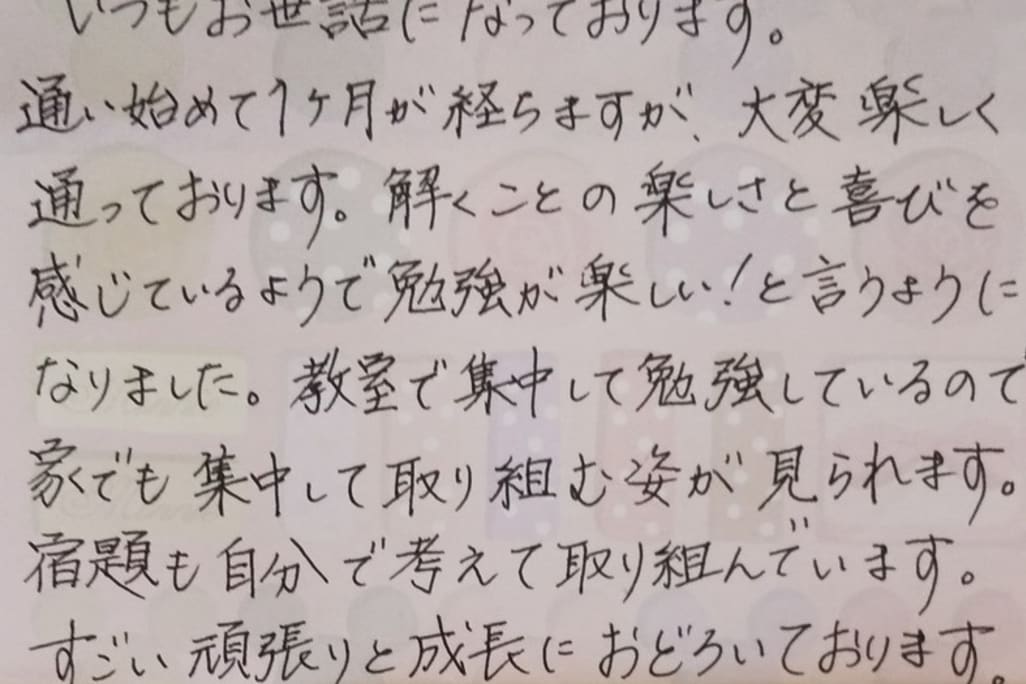 いつもお世話になっております。
通い始めて1ヶ月が経ちますが、大変楽しく
通っております。解くことの楽しさと喜びを
感じているようで勉強が楽しい!と言うように
なりました。教室で集中して勉強しているので
家でも集中して取り組む姿が見られます。
宿題も自分で考えて取り組んでいます。
すごい頑張りと成長におどろいております。